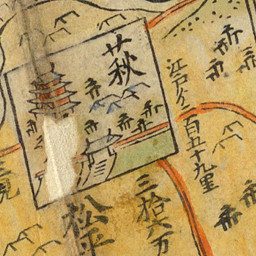 萩
江戸ヨリ二百五十九里
三拾六万
松平